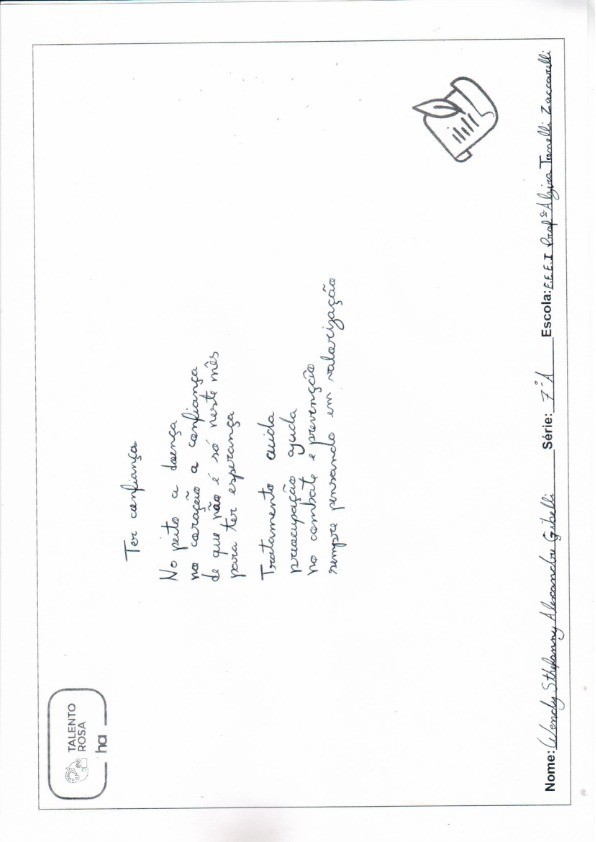 TALENTO
ROSA
ha
Ter confiança
No peito a doença
no coração a confiança
de que não é só neste mês
para ter esperança
Tratamento cuida
preocupação ajuda
no combate e prevenção
sempre pensando em valorização
Nome: Wendy Sthefanny Alexandre Gibelli Série: 7º A Escola: E.E.E.I Profª Alzira Tonelli Zaccarelli